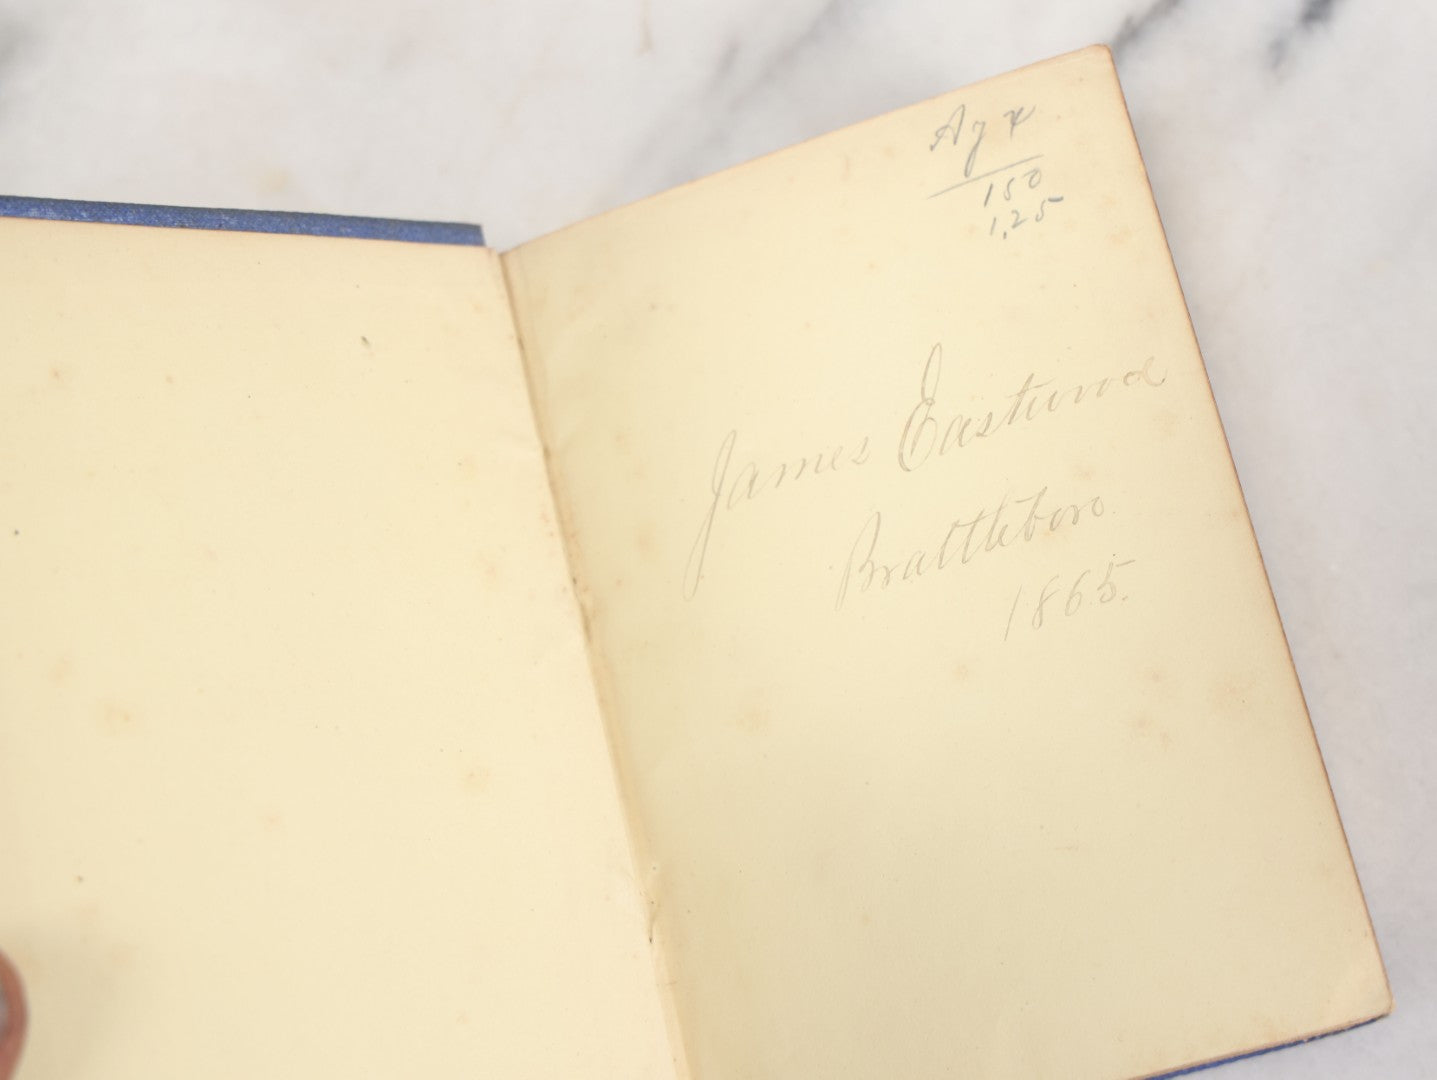 150
1.25
James Eastwood
Brattleboro
1865.